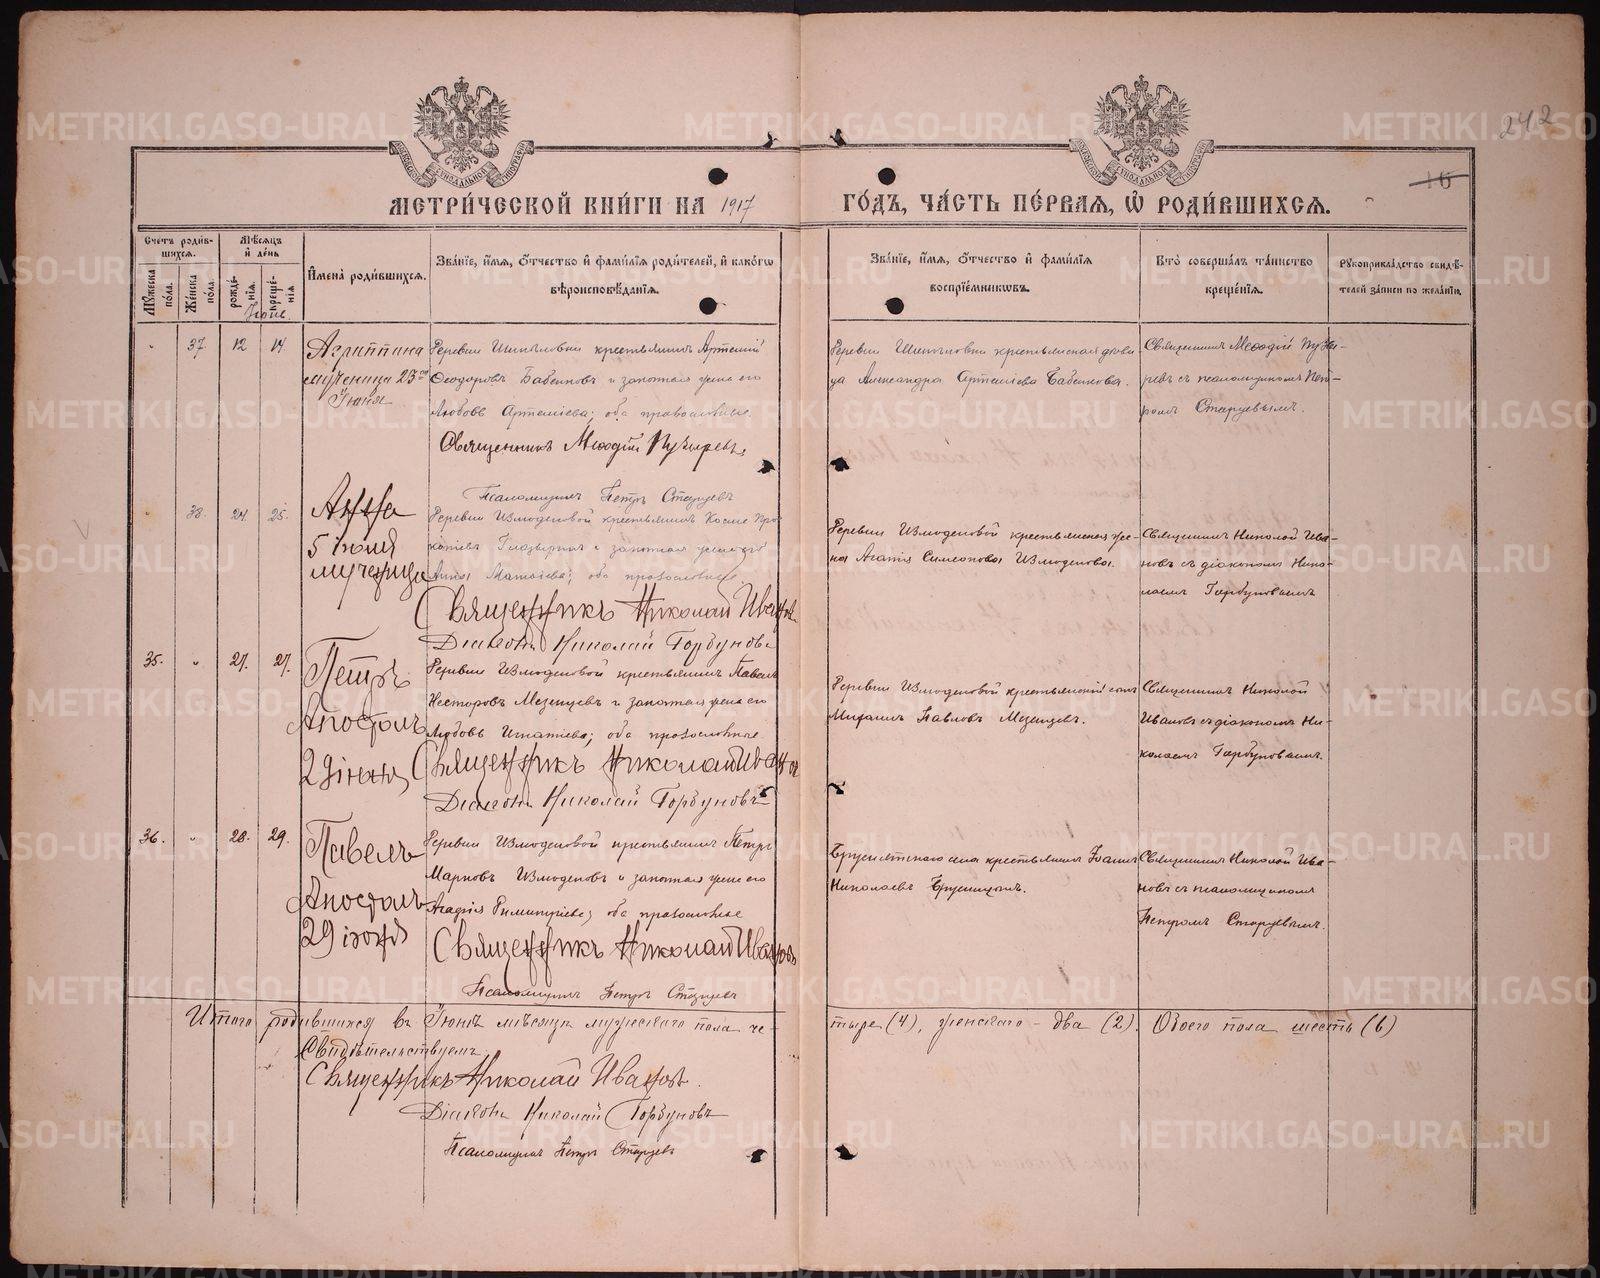 242
16
МЕТРИ́ЧЕСКОЙ КНИ́ГИ НА 1917 ГО́ДЪ, ЧА́СТЬ ПЕ́РВАЯ, Ѡ РОДИ́ВШИХСЯ.
Счетъ роди́вшихся.
Му́жеска по́ла.
Же́нска по́ла.
Мѣ́сяцъ и де́нь
рожде́нія.
креще́нія
Іюнь.
Имена̀ роди́вшихся.
Зва́ніе, и́мя, о́тчество и фами́лія роди́телей, и како́гѡ вѣроисповѣ́данія.
Зва́ніе, и́мя, о́тчество и фами́лія воспріе́мниковъ.
Кто̀ соверша́лъ та́инство креще́нія.
Рукоприкла́дство свидѣ́телей за́писи по жела́нію.
37 12 14
Агриппина
мученица 23го
Іюня
крестьянинъ Артемій
Ѳеодоровъ и законная жена его
Любовь Артеміева; оба православные.
Священникъ Меѳодій Пузыревъ
Псаломщикъ Петръ Старцевъ
крестьянская дѣви
ца Александра Артеміева
Священникъ Меѳодій Пузы-
ревъ съ псаломщикомъ Пет-
ромъ Старцевымъ.
38. 24. 25.
Анна
5 іюля
мученица
Деревни Измоденовой крестьянинъ Косма Про-
и законная жена его
Анна оба православные.
Священникъ Николай Ивановъ
Діаконъ Николай Горбуновъ
Деревни Измоденовой крестьянская же-
на Агаѳія Симеонова Измоденова.
Священникъ Николай Ива-
новъ съ діакономъ Нико-
лаемъ Горбуновымъ
35. 27. 27.
Петръ
Апостолъ
29 іюня
Деревни Измоденовой крестьянинъ Павелъ
Несторовъ Мезенцевъ и законная жена его
Любовь Игнатіева; оба православные
Священникъ Николай Ивановъ
Діаконъ Николай Горбуновъ
Деревни Измоденовой крестьянскій сынъ
Михаилъ Павловъ Мезенцевъ.
Священникъ Николай
Ивановъ съ діакономъ Ни-
колаемъ Горбуновымъ.
36. 28. 29.
Павелъ
Апостолъ
29 іюня
Деревни Измоденовой крестьянинъ Петръ
Марковъ Измоденовъ и законная жена его
оба православные
Священникъ Николай Ивановъ
Псаломщикъ Петръ Старцевъ
Бруснятскаго села крестьянинъ Іоаннъ
Николаевъ Брусницынъ.
Священникъ Николай Ива-
новъ съ псаломщикомъ
Петромъ Старцевымъ.
Итого родившихся въ Іюнѣ мѣсяцѣ мужескаго пола че-
тыре (4), женскаго - два (2). Обоего пола шесть (6)
Свидѣтельствуемъ
Священникъ Николай Ивановъ.
Діаконъ Николай Горбуновъ
Псаломщикъ Петръ Старцевъ
METRIKI.GASO-URAL.RU